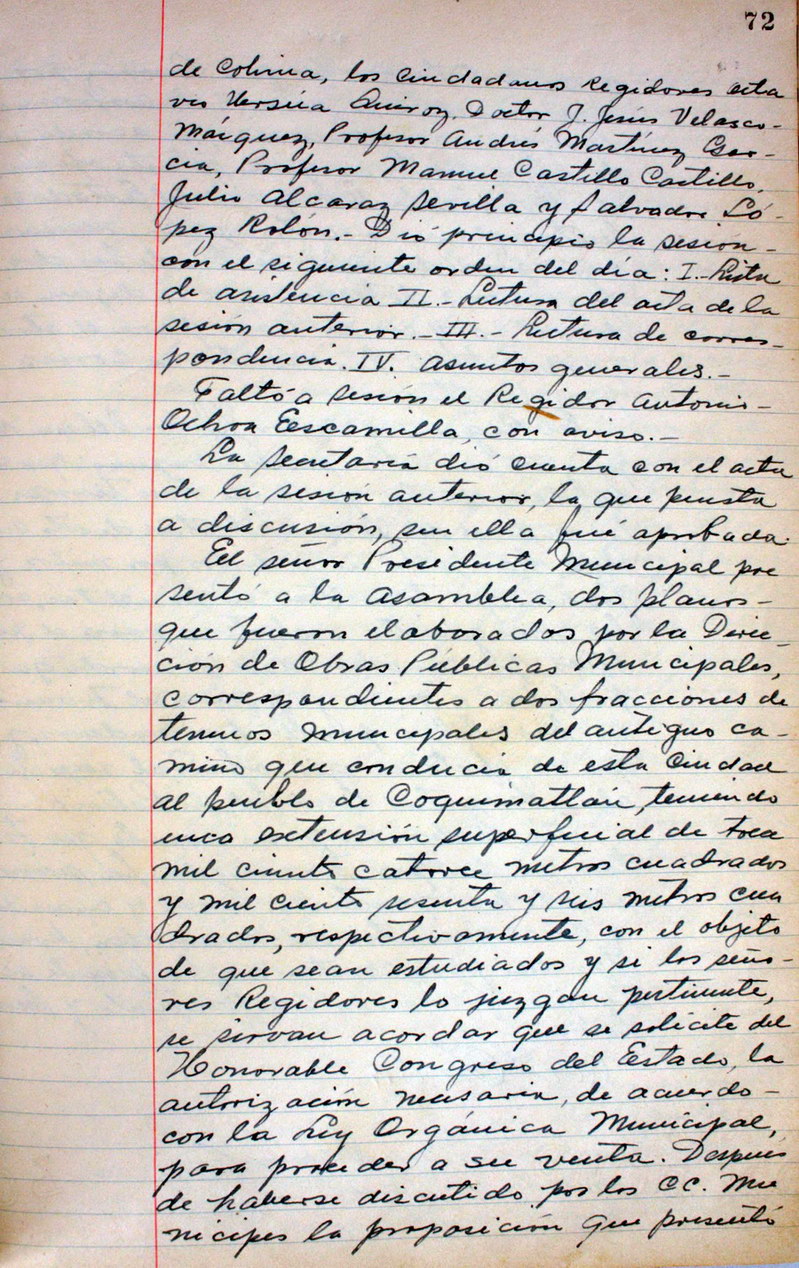 72
de Colima, los Ciudadanos Regidores Octa
vio Ursúa Quiroz, Doctor J. Jesús Velasco-
Márquez, Profesor Andrés Martínez Gar-
cia, Profesor Manuel Castillo Castillo,
Julio Alcaraz Sevilla y Salvador Ló-
pez Rolón.- Dió principio la sesión-
con el siguiente orden del día: I.- Lista
de asistencia II.- Lectura del acta de la
sesión anterior.- III.- Lectura de corres-
pondencia. IV. Asuntos generales.-
Faltó a sesión el Regidor Antonio-
Ochoa Eescamilla, con aviso.-
La Secretaría dió cuenta con el acta
de la sesión anterior, la que puesta
a discusión, sin ella fué aprobada.
Eel señor Presidente Municipal pre
sentó a la Asamblea, dos planos-
que fueron elaborados por la Direc-
ción de Obras Públicas Municipales,
correspondientes a dos fracciones de
terrenos Municipales del antiguo ca-
mino que conducía de esta Ciudad
al pueblo de Coquimatlán, teniendo
una extensión superficial de trece
mil ciento catorce metros cuadrados
y mil ciento sesenta y seis metros cua
drados, respectivamente, con el objeto
de que sean estudiados y si los seño-
res Regidores lo juzgan pertinente,
se sirvan acordar que se solicite del
Honorable Congreso del Estado, la
autorización necesaria, de acuerdo-
con la Ley Orgánica Municipal,
para proceder a su venta. Después
de haberse discutido por los CC. Mu
nícipes la proposición que presentó